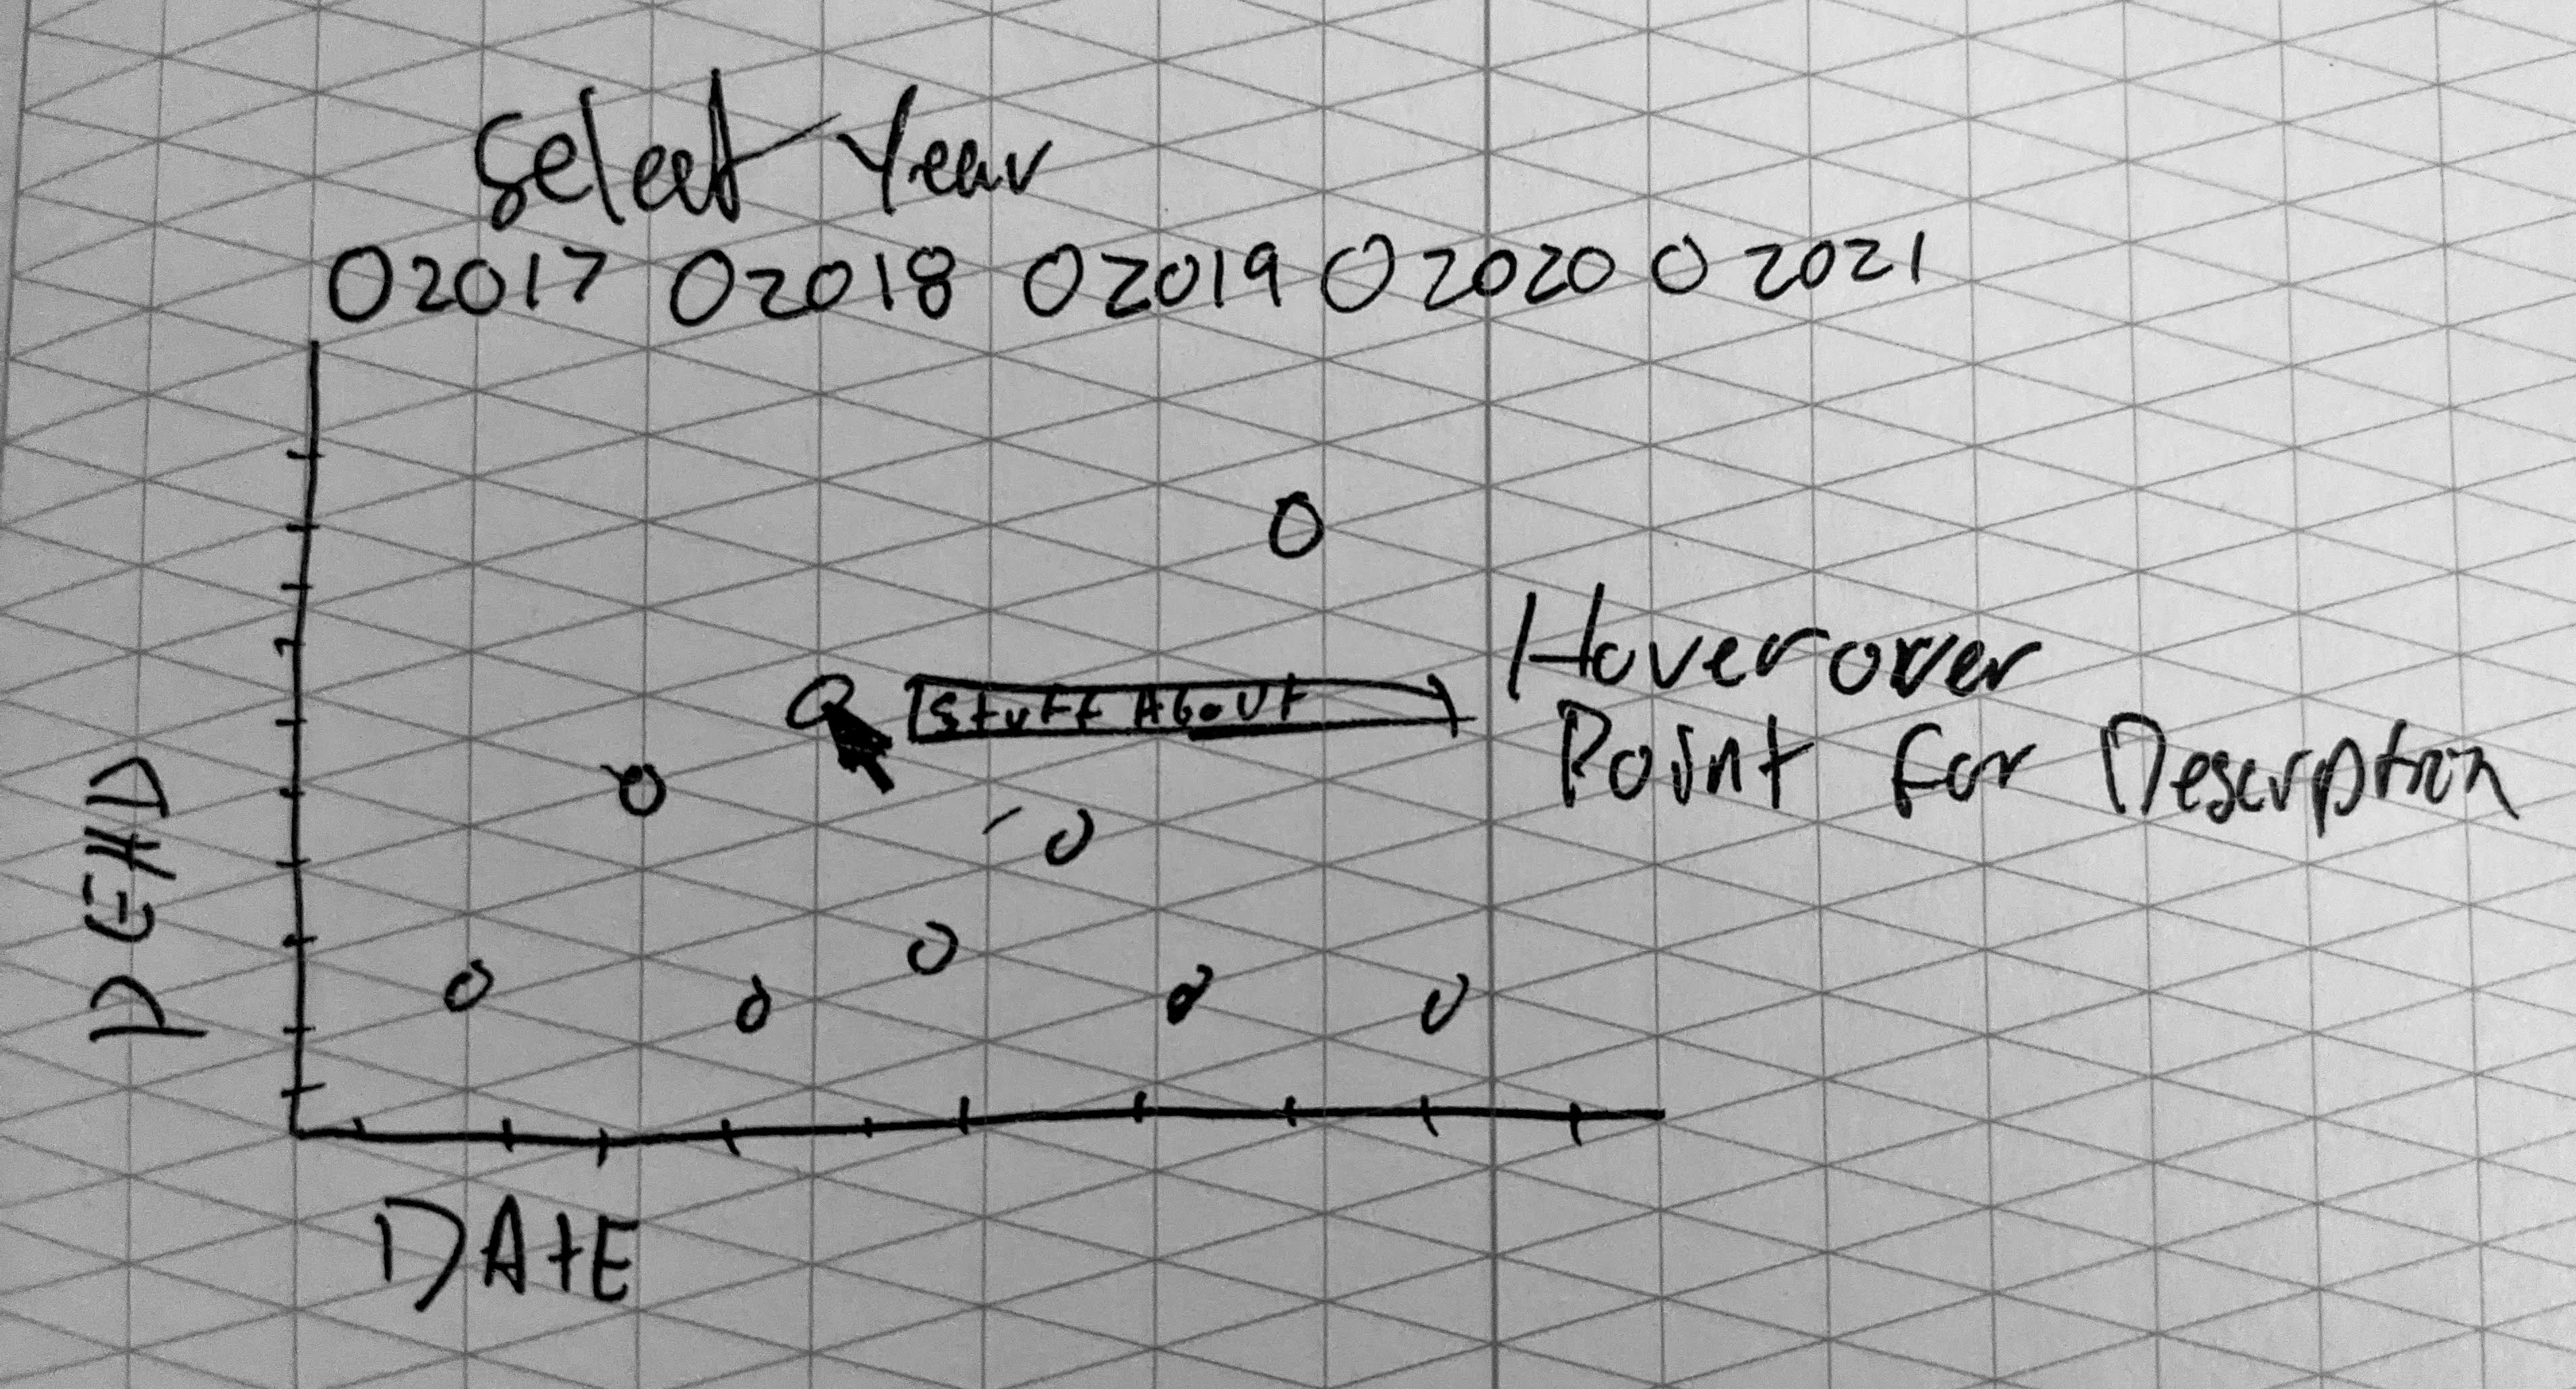 Select Year
O 2017 O 2018 O 2019 O 2020 O 2021
Stuff About
Hover over
Point for Descrption
DATE